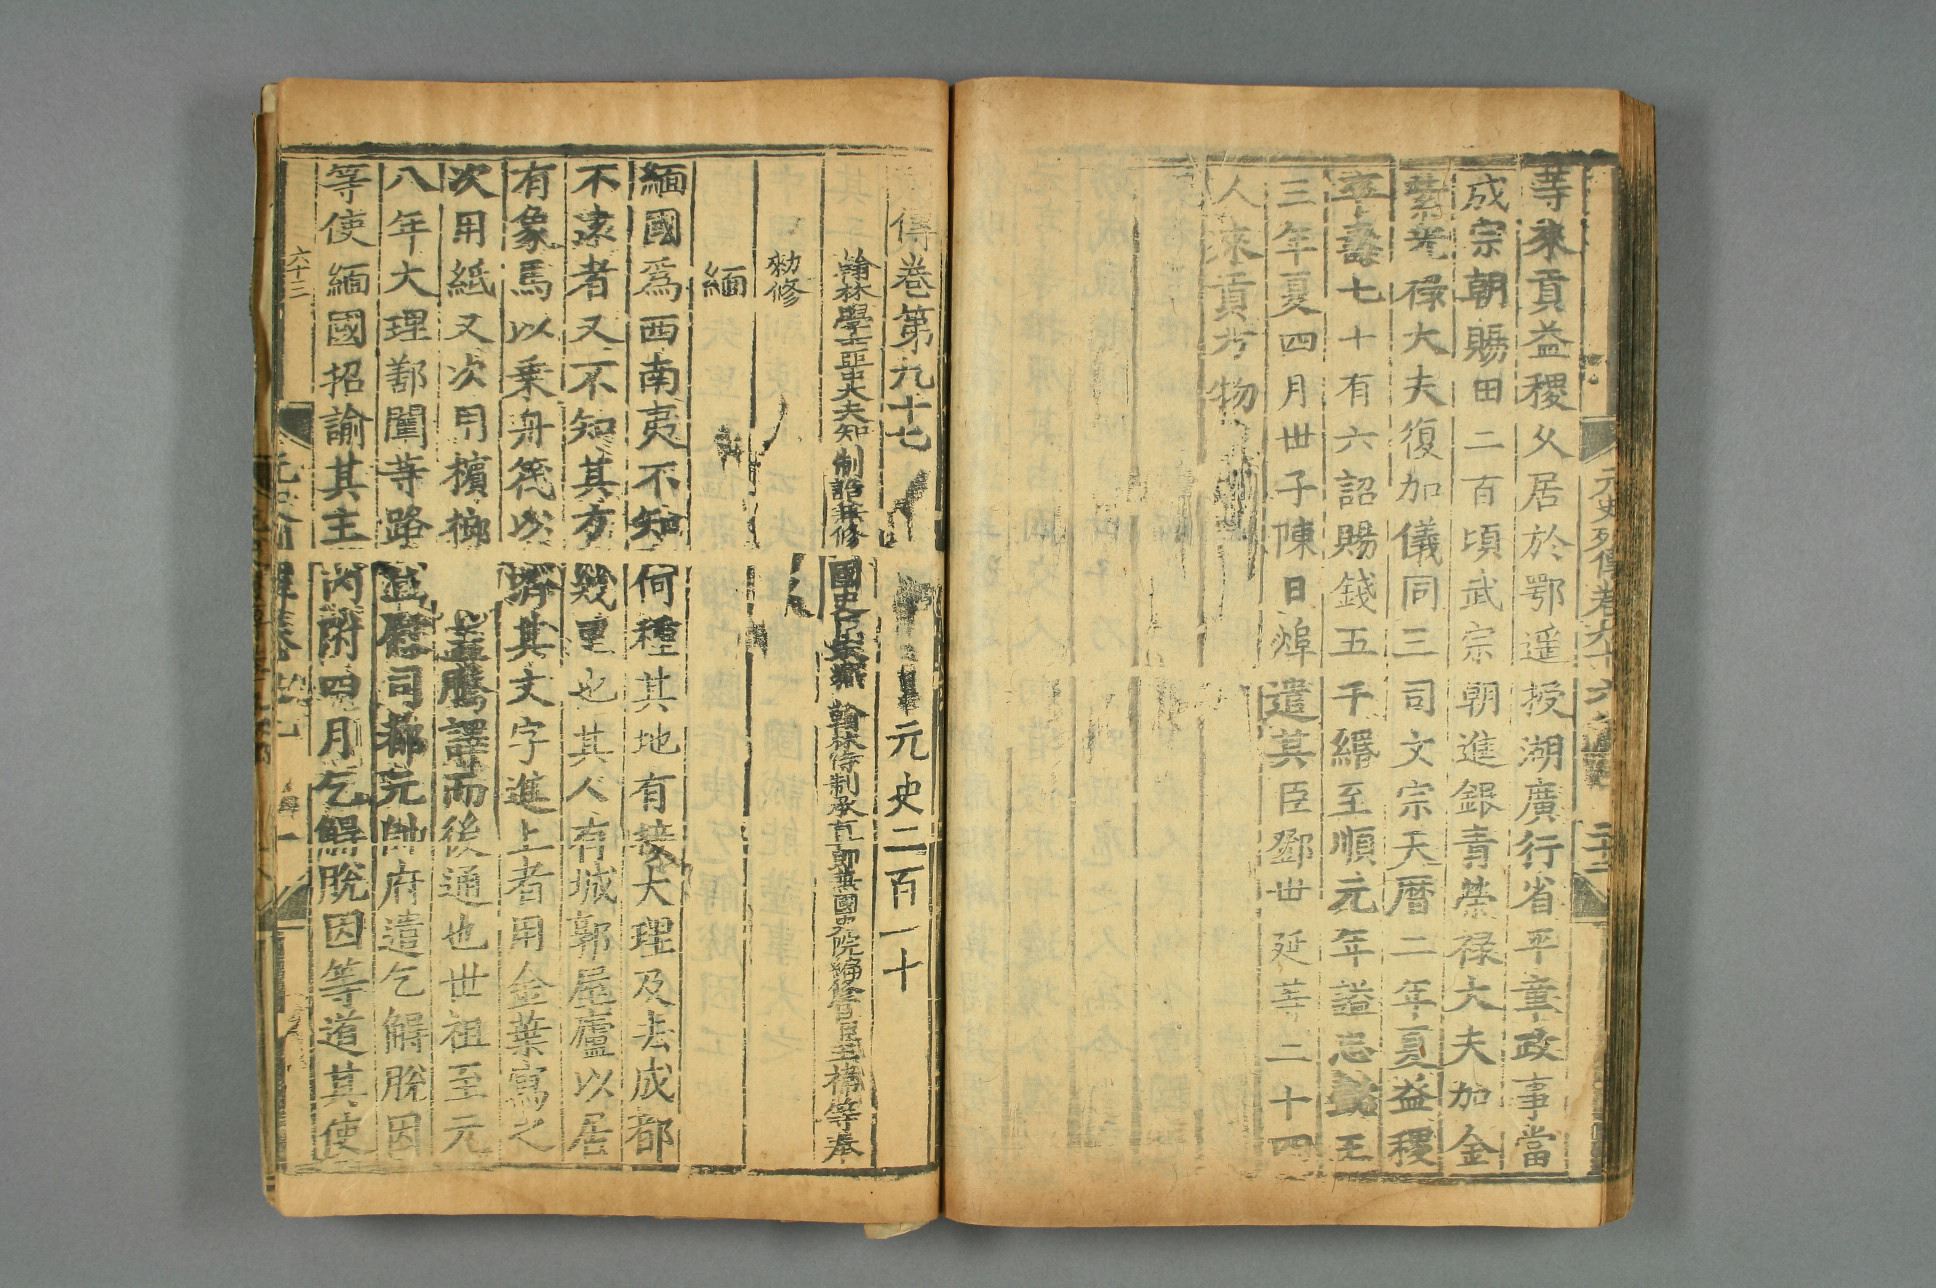 元史列傳卷九十六
等來貢益稷久居於鄂遥授湖廣行省平章政事當
成宗朝賜田二百頃武宗朝進銀青榮禄大夫加金
紫光禄大夫復加儀同三司文宗天曆二年夏益稷
卒壽七十有六詔賜錢五千緡至順元年謚忠懿王
三年夏四月世子陳日㷆遣其臣鄧世延等二十四
人來貢方物
傳卷第九十七 元史二百一十
翰林學士亞中大夫知制誥兼修國史臣宋濂 翰林待制承直郎兼國史院編修官臣王禕等奉
勑修
緬
緬國爲西南夷不知何種其地有接大理及去成都
不逺者又不知其方幾里也其人有城郭屋廬以居
有象馬以乗舟筏以濟其文字進上者用金葉寫之
次用紙又次用檳榔葉盖騰譯而後通也世祖至元
八年大理鄯闡等路宣慰司都元帥府遣乞䚟脫因
等使緬國招諭其主内附四月乞䚟脫因等道其使
六十三